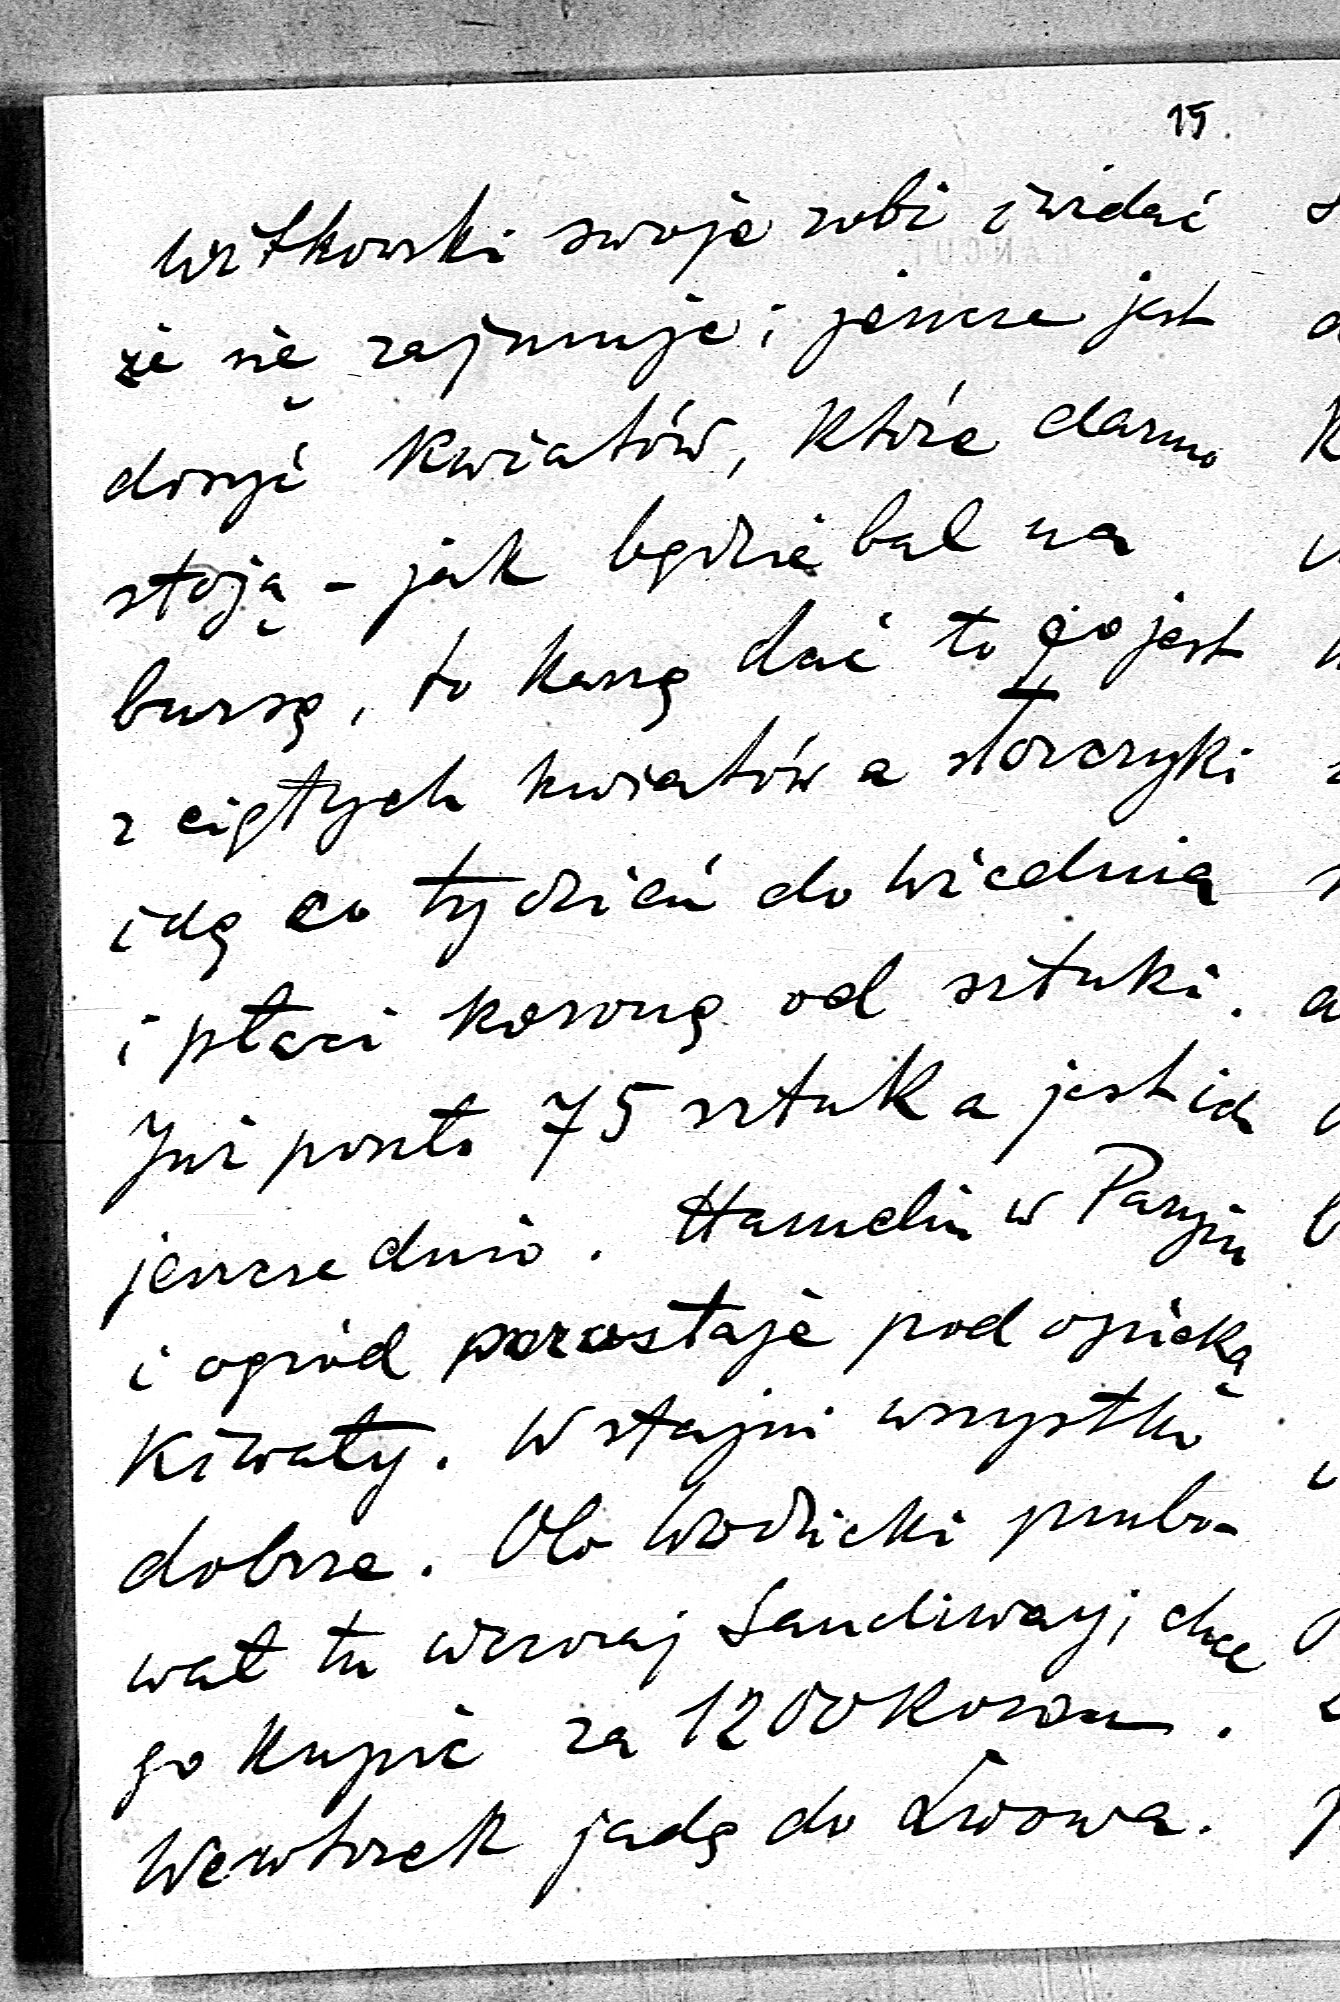 15.
Witkowski swoje robi i widać
że się zajmuje; jeszcze jest
dosyć kwiatów, które darmo
stoją - jak będzie bal na
bursę, to każę dać to co jest
z ciętych kwiatów a storczyki
idą co tydzień do Wiednia
i płaci koronę od sztuki.
Już poszło 75 sztuk a jest ich
jeszcze dużo. Hamelin w Paryżu
i ogród pozostaje pod opieką
Kiwały. W stajni wszystko
dobrze. Olo Wodzicki próbo-
wał tu wczoraj Sandiway; chce
go kupić za 1200 Koron.
We wtorek jadę do Lwowa.